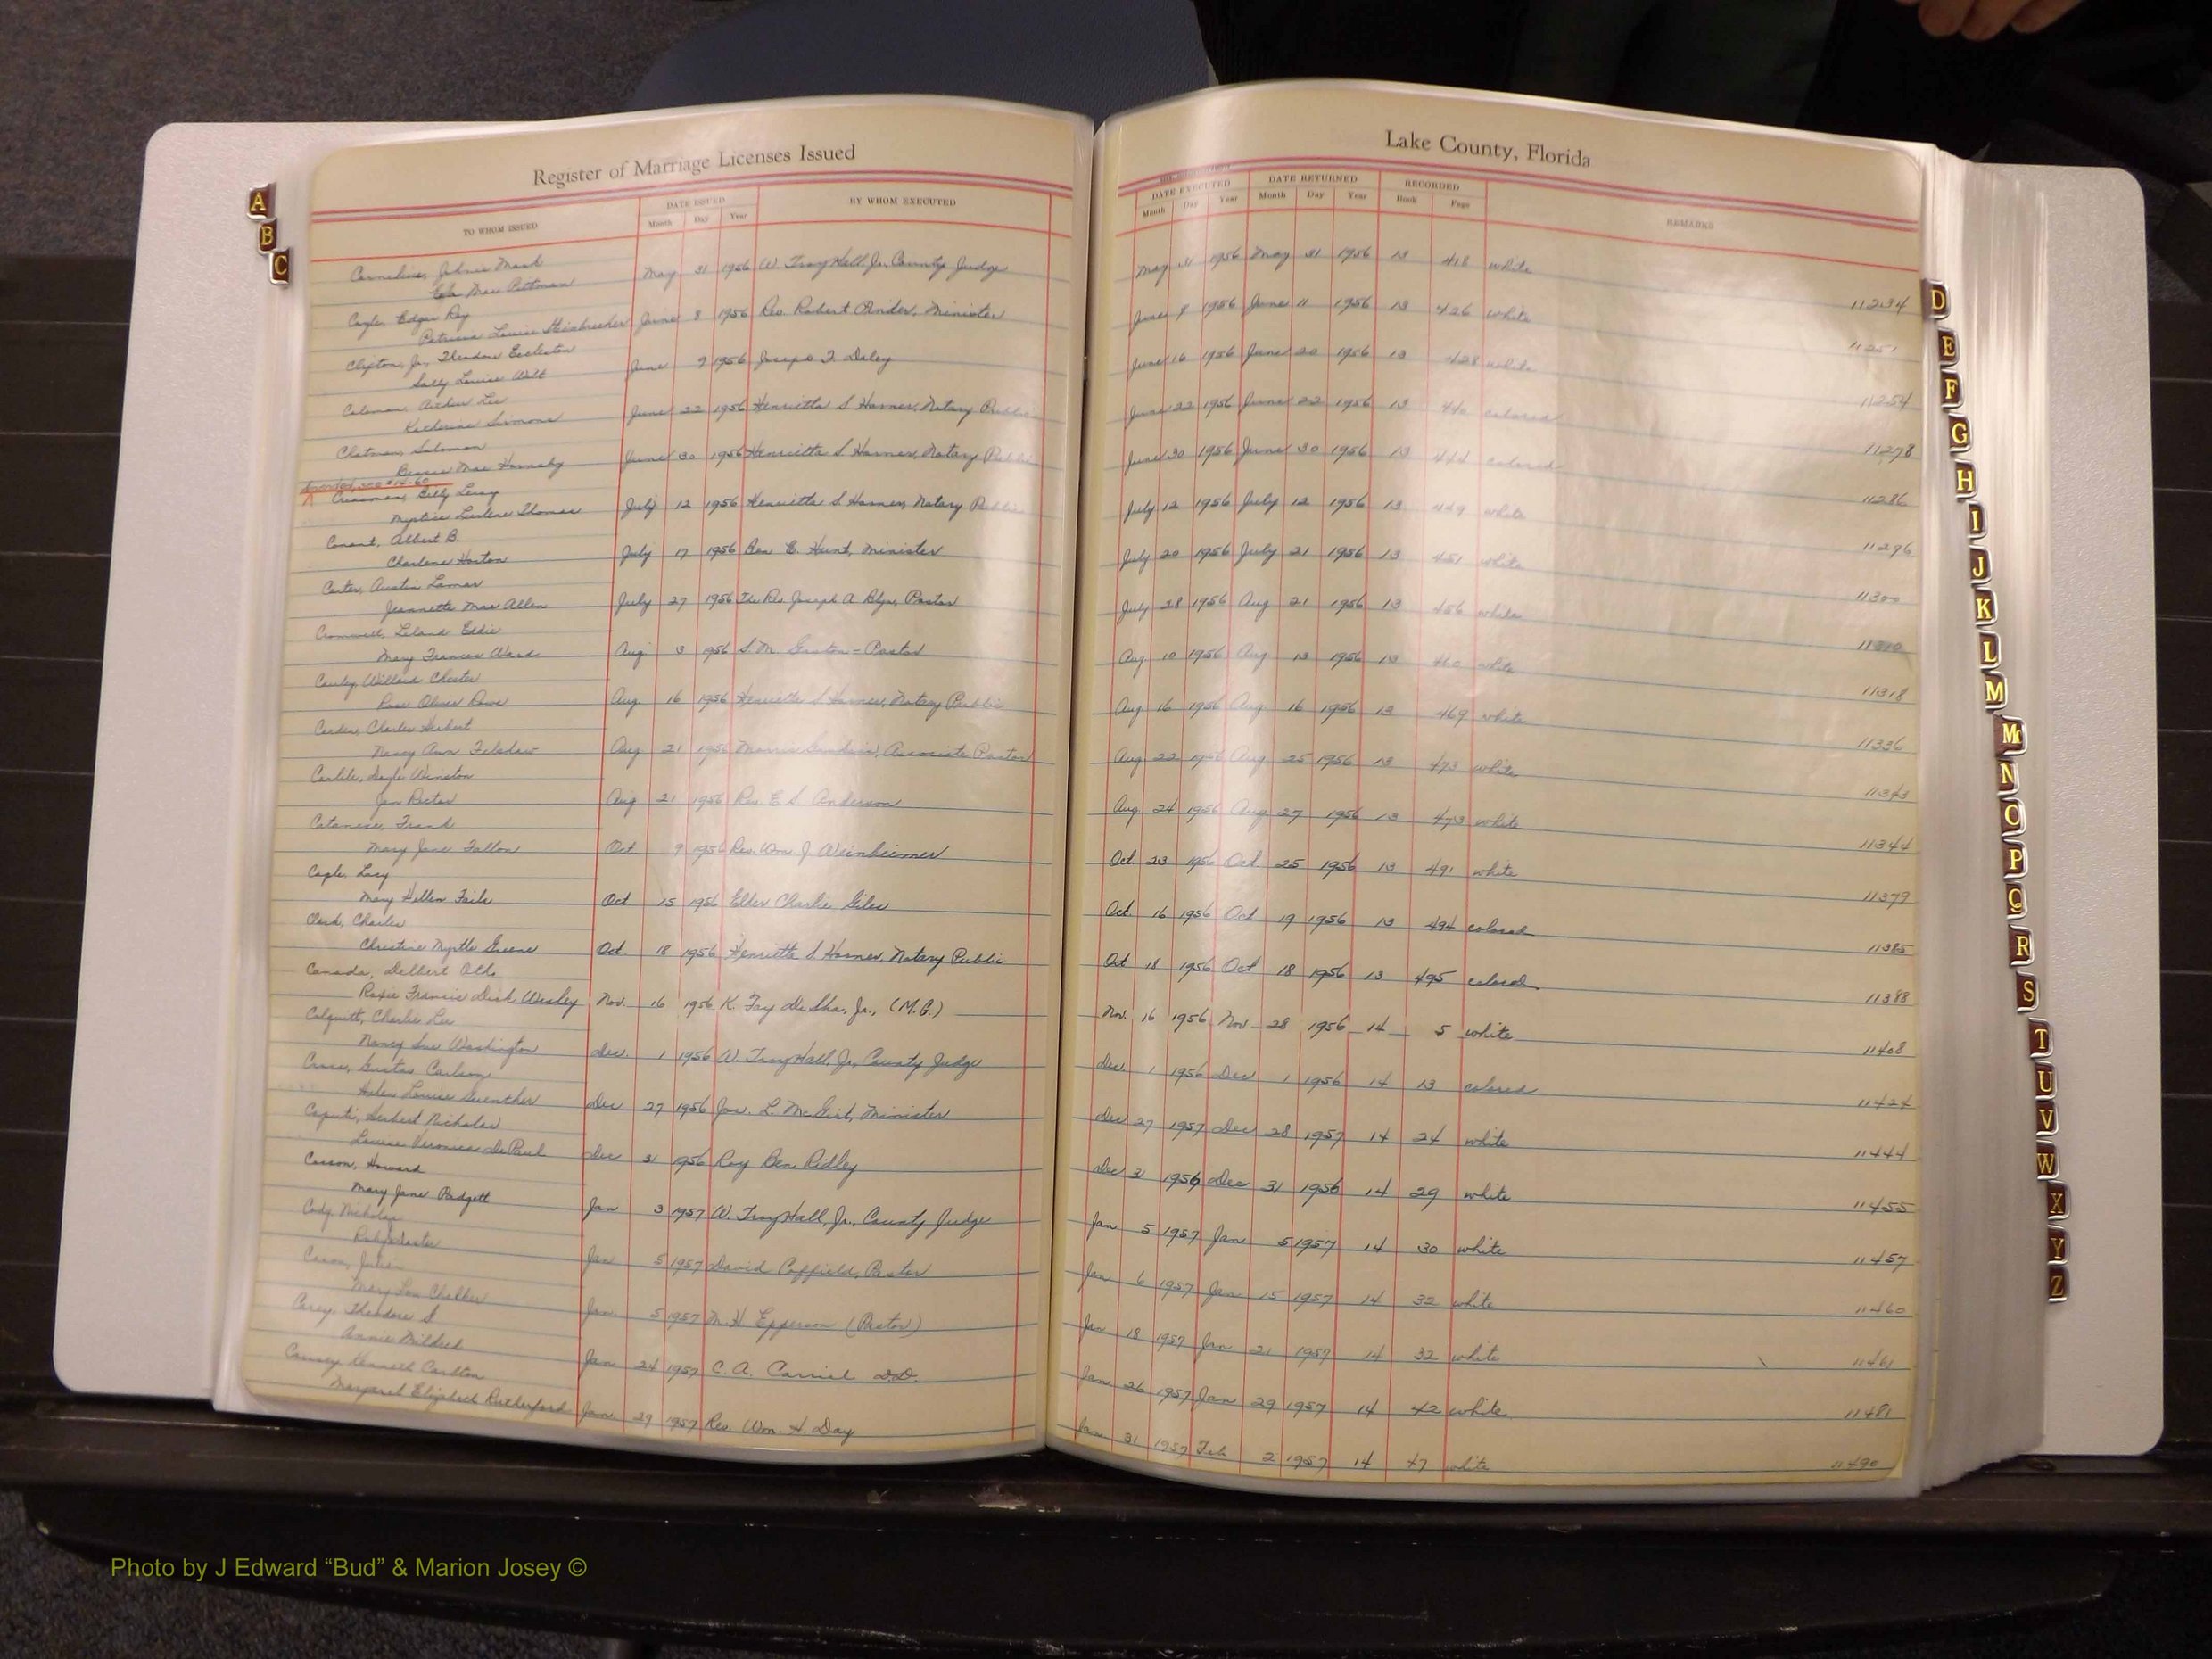 Register of Marriage Licenses Issued
TO WHOM ISSUED DATE ISSUED Month Day Year BY WHOM EXECUTED
Cornelius, Johnie Mack
Mae Pittman May 31 1956 W. Troy Hall, Jr. County Judge
Cagle, Edgar Ray
Patricia Louise Steinbrecher June 8 1956 Rev. Robert Minister
Clifton, Jr, Theodore Eccleston
Sally Louise Wilt June 9 1956 Joseph F Daley
Coleman, Arthur Lee
Katherine Simmons June 22 1956 Henrietta S Harner, Notary Public
Chatman, Soloman
Bessie Mae Hornsby June 30 1956 Henrietta S Harner, Notary Public
Amended, see #14-60
Cressman, Billy Leroy
Myrtice Lurlene Thomas July 12 1956 Henrietta S. Harner, Notary Public
Conant, Albert B.
Charlene Horton July 17 1956 Ben E. Hunt, Minister
Carter, Austin Lamar
Jeannette Mae Allen July 27 1956 The Rev Joseph A. Pastor
Cromwell, Leland Eddie
Mary Frances Ward Aug 3 1956 S.M. - Pastor
Willard Chester
Rose Oliver Rowe Aug 16 1956 Henrietta S Harner, Notary Public
Carden, Charles Herbert
Nancy Ann Aug 21 1956 Associate Pastor
Carlile, Winston
Jan Rector Aug 21 1956 Rev. E S Anderson
Catanese, Frank
Mary Jane Fallon Oct 9 1956 Rev. Wm J Weinheimer
Lacy
Mary Hellen Faile Oct 15 1956 Elder Charlie Giles
Clark, Charles
Christine Myrtle Greene Oct. 18 1956 Henrietta S Harner, Notary Public
Canada, Delbert
Roxie Francis Dick Wesley Nov. 16 1956 K. Fay De Sha, Jr., (M.G.)
Colquitt, Charlie Lee
Nancy Sue Washington Dec. 1 1956 W. Troy Hall, Jr., County Judge
Gustav Carlson
Helen Louise Guenther Dec 27 1956 Jas. L. McGirt, Minister
Caputi, Herbert Nicholas
Louise Veronica DePaul Dec 31 1956 Roy Ben Ridley
Casson, Howard
Mary Jane Padgett Jan 3 1957 W. Troy Hall, Jr., County Judge
Cody, Nicholas
Jan 5 1957 David Coffield, Pastor
Julian
Mary Lou Chalker Jan 5 1957 M. H Epperson (Pastor)
Carey, Theodore S
Annie Mildred Jan 24 1957 C. A. D.D.
Kenneth Carlton
Margaret Elizabeth Rutherford Jan 29 1957 Rev. Wm. H. Day
Lake County, Florida
DATE EXECUTED Month Day Year DATE RETURNED Month Day Year RECORDED Book Page REMARKS
May 31 1956 May 31 1956 13 418 white 11234
June 8 1956 June 11 1956 13 426 white 11251
June 16 1956 June 20 1956 13 428 white 11254
June 22 1956 June 22 1956 13 440 colored 11278
June 30 1956 June 30 1956 13 444 colored 11286
July 12 1956 July 12 1956 13 449 white 11296
July 20 1956 July 21 1956 13 451 white 11300
July 28 1956 Aug 21 1956 13 456 white 11310
Aug 10 1956 Aug 13 1956 13 460 white 11318
Aug 16 1956 Aug 16 1956 13 469 white 11336
Aug 22 1956 Aug 25 1956 13 473 white 11343
Aug 24 1956 Aug 27 1956 13 473 white 11344
Oct 23 1956 Oct 25 1956 13 491 white 11379
Oct 16 1956 Oct 19 1956 13 494 colored 11385
Oct 18 1956 Oct 18 1956 13 495 colored 11388
Nov. 16 1956 Nov 28 1956 14 5 white 11408
Dec 1 1956 Dec 1 1956 14 13 colored 11424
Dec 27 1957 Dec 28 1957 14 24 white 11444
Dec 31 1956 Dec 31 1956 14 29 white 11455
Jan 5 1957 Jan 5 1957 14 30 white 11457
Jan 6 1957 Jan 15 1957 14 32 white 11460
Jan 18 1957 Jan 21 1957 14 32 white 11461
Jan 26 1957 Jan 29 1957 14 42 white 11481
Jan 31 1957 Feb 2 1957 14 47 white 11490
A
B
C
D
E
F
G
H
I
J
K
L
M
Mc
N
O
P
Q
R
S
T
U
V
W
X
Y
Z
Photo by J Edward “Bud” & Marion Josey ©